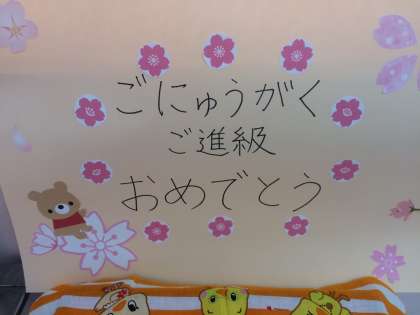 ごにゅうがく
ご進級
おめでとう